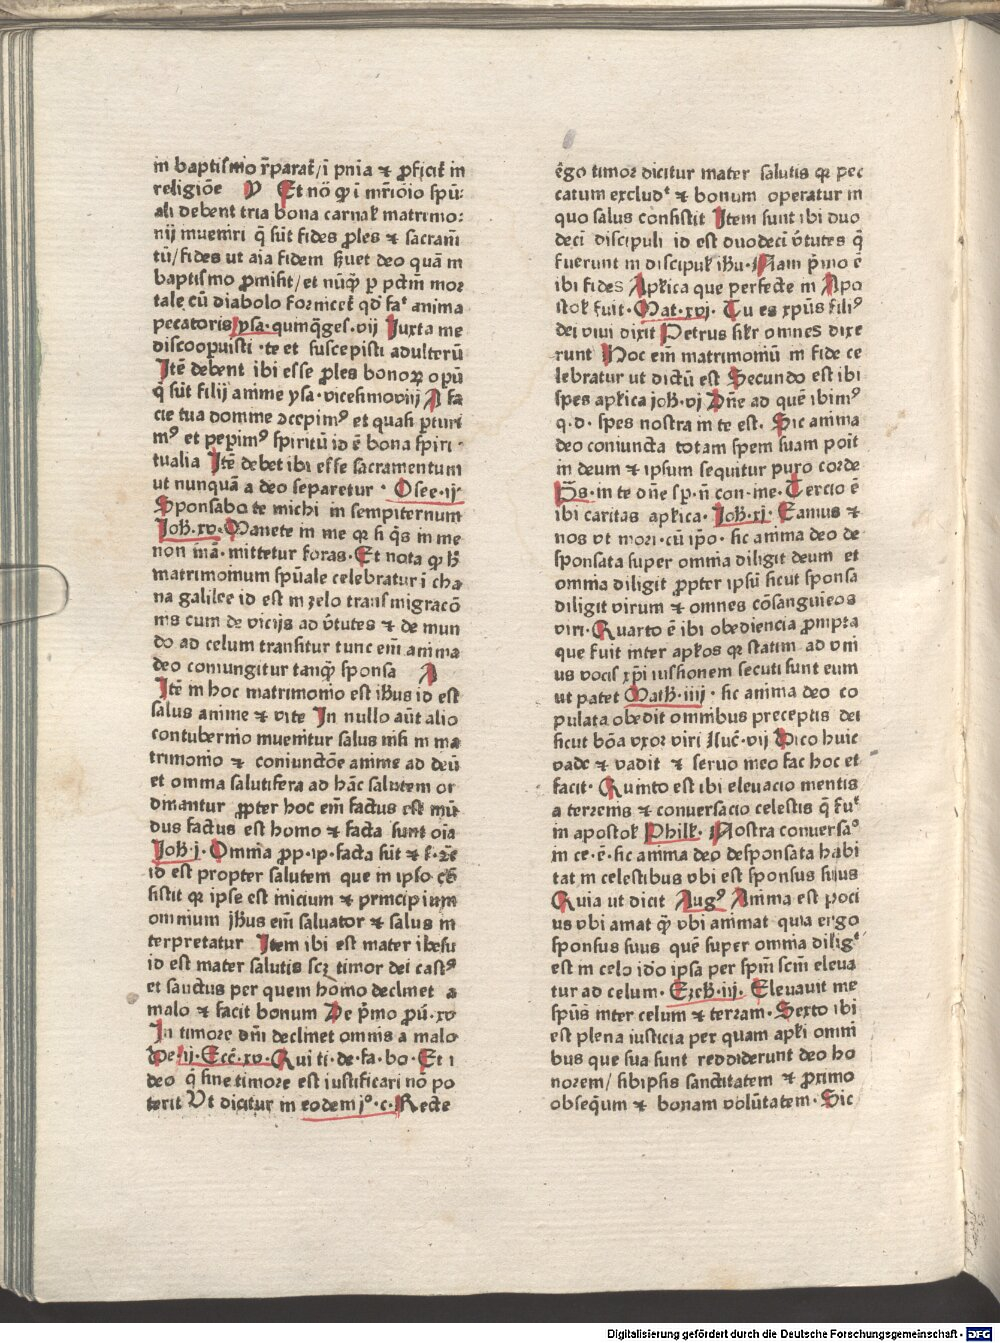 in baptismo r̄parat᷑/ī pn̄ia ⁊ ꝓficit᷑ in
religiōe V Et nō ꝙ ī mr̄iōio spū:
ali debent tria bona carnaƚ matrimo:
nij inueniri q̄ sūt fides ꝓles ⁊ sacram̄
tū/fides ut aīa fidem ẜuet deo quā in
baptismo ꝓmisit/et nūꝙ̄ ꝑ pctm̄ mor
tale cū diabolo fornicet᷑ qđ faᶜ anima
peccatoris ysa·qumq̄ges·vij Iuxta me
discoopuisti ·te et suscepisti adulterū
Itē debent ibi esse ꝓles bonoꝝ opū
q̄ sūt filij anime ysa·vicesimoviij A fa
cie tua domine ꝯcepimꝰ et quasi ꝑturi
mꝰ et peperimꝰ spiritū id ē bona spiri·
tualia Itē debet ibi esse sacramentum
ut nunquā a deo separetur · Osee·ij
Sponsabo te michi in sempiternum
Joh·xv·Manete in me qꝛ si q̄s in me
non mā·mittetur foras·Et nota ꝙ h̄
matrimonium spūale celebratur ī cha
na galilee id est in zelo transmigracō
nis cum de vicijs ad v̄tutes ⁊ de mun
do ad celum transitur tunc em̄ anima
deo coniungitur tanꝙ̄ sponsa A
Itē in hoc matrimonio est ih̄us id est
salus anime ⁊ vite In nullo aūt alio
contubernio inuenitur salus nisi in ma
trimonio ⁊ coniunctōe anime ad deū
et omnia salutifera ad hāc salutem or
dinantur ꝓpter hoc em̄ factus est mū
dus factus est homo ⁊ facta sunt oīa
Joh·j·Omnia ꝓp·ip·facta sūt ⁊
id est propter salutem que in ipso cō
sistit qꝛ ipse est inicium ⁊ principium
omnium ih̄us em̄ saluator ⁊ salus in
terpretatur Item ibi est mater ihesu
id est mater salutis scꝫ timor dei castꝰ
et sanctus per quem homo declinet a
malo ⁊ facit bonum De p̄mo ꝓū·xv
In timore dn̄i declinet omnis a malo
De ij·Ecc̄·xv·Qui ti·de·fa·bo·Et i
deo q̄ sine timore est iustificari nō po
terit Vt dicitur in eodem jᵒ·c·Recte
ēgo timor dicitur mater salutis qꝛ pec
catum excludᵗ ⁊ bonum operatur in
quo salus consistit Item sunt ibi duo
decī discipuli id est duodecī v̄tutes q̄
fuerunt in discipuƚ ih̄u·Nam p̄mo ē
ibi fides Apƚica que perfecte in Apo
stoƚ fuit·Mat·xvj· Tu es xp̄us filiꝰ
dei viui dixit Petrus siƚr omnes dixe
runt Hoc em̄ matrimoniū in fide ce
lebratur ut dictū est Secundo est ibi
spes apƚica joh·vj Dn̄e ad quē ibimꝰ
q·d·spes nostra in te est·Sic anima
deo coniuncta totam spem suam poīt
in deum ⁊ ipsum sequitur puro corde
Ps·in te dn̄e sp·n̄ con·me·Tercio ē
ibi caritas apƚica·Joh·xj·Eamus ⁊
nos vt mori·cū ip̄o·sic anima deo de
sponsata super omnia diligit deum et
omnia diligit ꝓpter ipsū sicut sponsa
diligit virum ⁊ omnes cōsanguīeos
viri·Quarto ē ibi obediencia ꝓmpta
que fuit inter apƚos qꝛ statim ad vni
us vocis xp̄i iussionem secuti sunt eum
ut patet Math·iiij·sic anima deo co
pulata obedit omnibus preceptis dei
sicut bōa vxor viri Luc̄·vij Dico huic
vade ⁊ vadit ⁊ seruo meo fac hoc et
facit·Quinto est ibi eleuacio mentis
a terrenis ⁊ conuersacio celestis q̄ fuᵗ
in apostoƚ Phiƚƚ·Nostra conuersaᵒ
in ce·ē·sic anima deo desponsata habi
tat in celestibus vbi est sponsus suus
Quia ut dicit Augꝰ Anima est poci
us vbi amat ꝙ̄ vbi animat quia ergo
sponsus suus quē super omnia diligᵗ
est in celo idō ipsa per spm̄ scm̄ eleua
tur ad celum·Ezech·iij·Eleuauit me
spūs inter celum ⁊ terram·Sexto ibi
est plena iusticia per quam apƚi omni
bus que sua sunt reddiderunt deo ho
norem/sibipsis sanctitatem ⁊ ꝓximo
obseqūm ⁊ bonam volūtatem·Sic
Digitalisierung gefördert durch die Deutsche Forschungsgemeinschaft - DFG